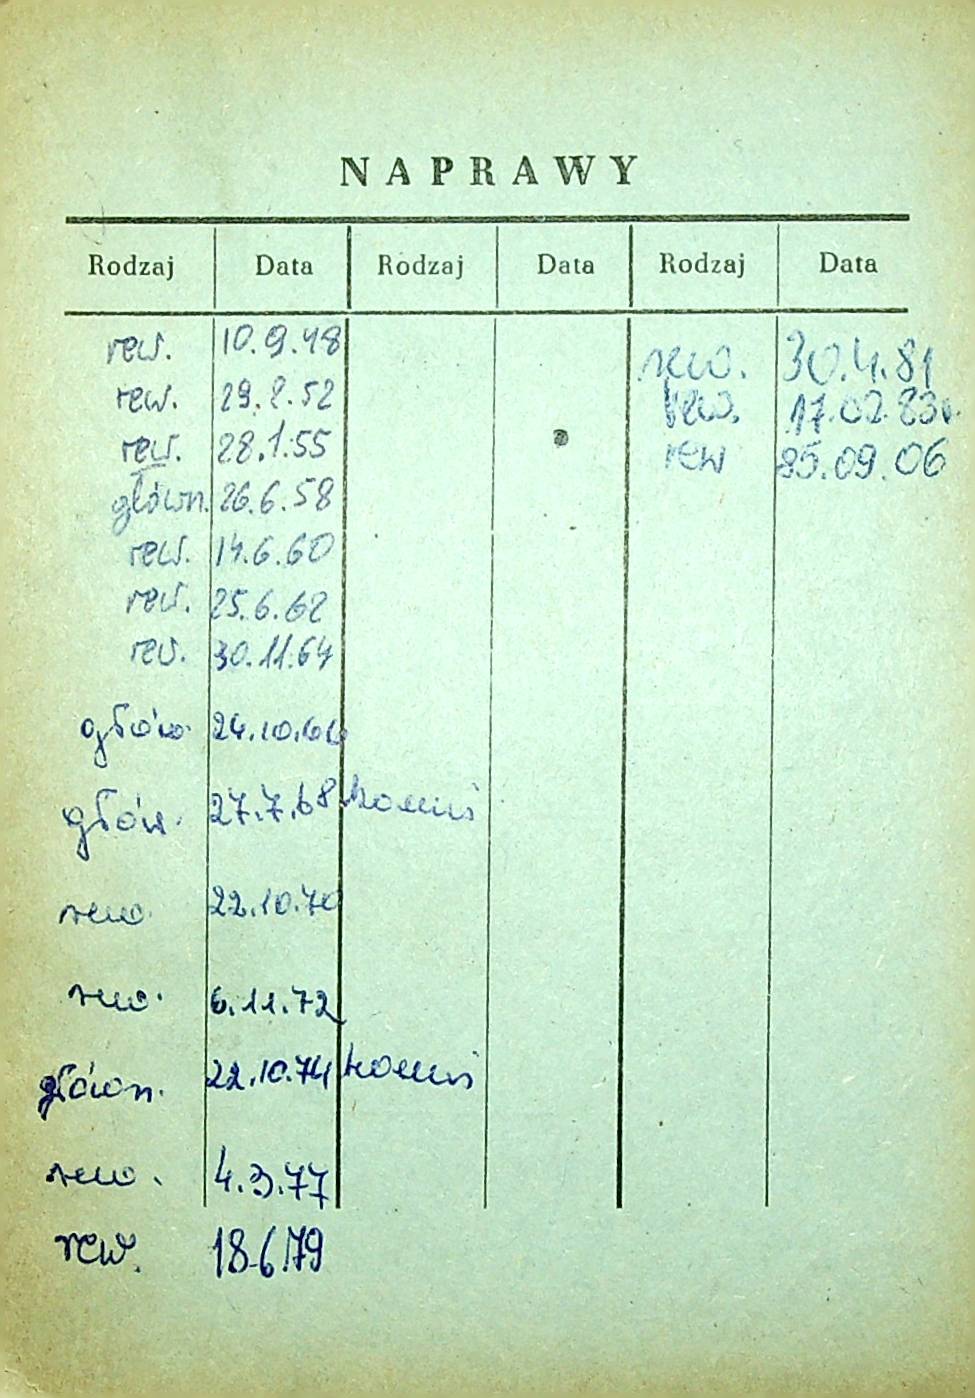 NAPRAWY
Rodzaj Data Rodzaj Data Rodzaj Data
rew. 10.9.48 rew. 30.4.81
rew. 29.2.52 rew. 17.02.83r.
rew. 28.1.55 rew 85.09.06
główn. 26.6.58
rew. 14.6.60
rew. 25.6.62
rew. 30.11.64
główn. 24.10.66
głów. 27.7.68
rew. 22.10.70
rew. 6.11.72
główn. 22.10.74
rew. 4.3.77
rew. 18.6.79